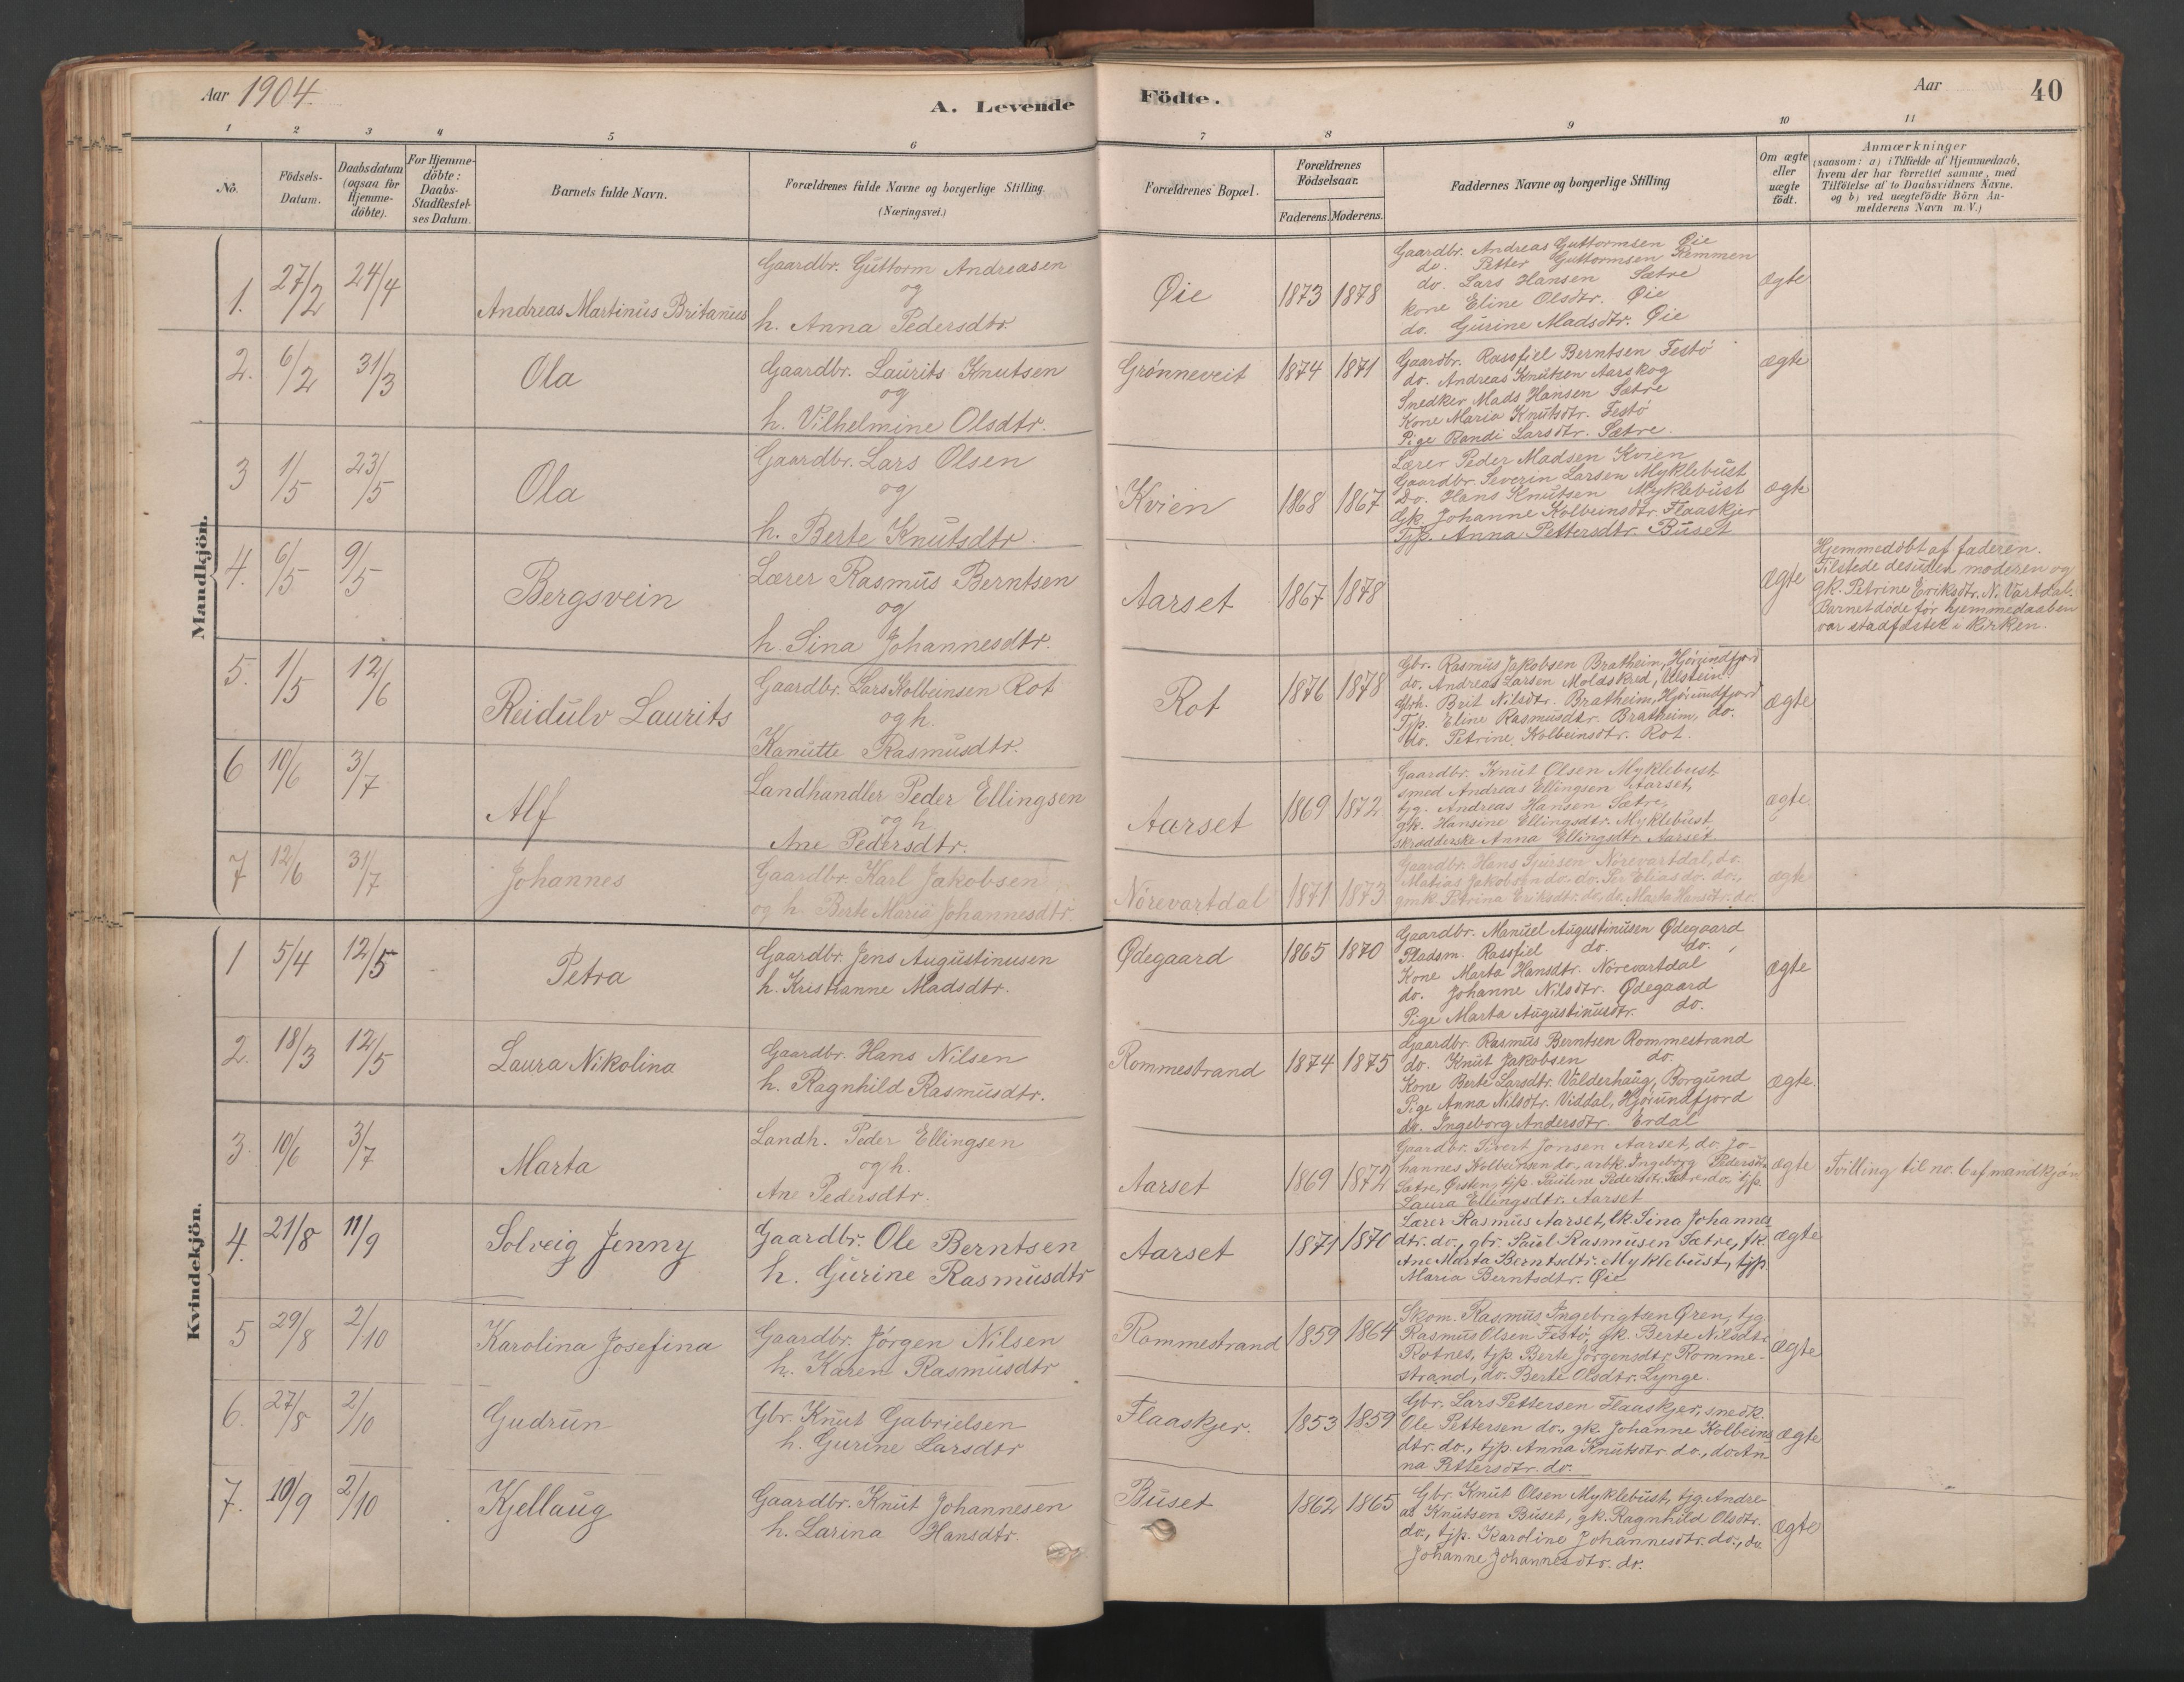 Aar 1904.
A. Levende Födte.
Aar
40
1 2 3 4 5 6 7 8 9 10 11
No.
Födsels-Datum.
Daabsdatum (ogsaa for Hjemme-döbte).
For Hjemme-döbte: Daabs-Stadfæstel-ses Datum.
Barnets fulde Navn.
Forældrenes fulde Navne og borgerlige Stilling.
(Næringsvei.)
Forældrenes Bopæl.
Forældrenes Födselsaar.
Faderens. Moderens.
Faddernes Navne og borgerlige Stilling
Om ægte eller uægte födt.
Anmærkninger
(saasom: a) i Tilfælde af Hjemmedaab,
hvem der har forrettet samme, med
Tilföielse af to Daabsvidners Navne.
og b) ved uægtefödte Börn An-
melderens Navn m. V.)
Mandkjön.
1. 27/2 24/4 Andreas Martinus Britanius
Gaardbr. Guttorm Andreasen
og
h. Anna Pedersdtr.
Øie 1873 1878
Gaardbr. Andreas Guttormsen Øie
do. Petter Guttormsen Remmen
do. Lars Hansen Sætre
kone Eline Olsdtr. Øie
do. Gurine Madsdtr. Øie
ægte
2. 6/2 31/3 Ola
Gaardbr. Laurits Knutsen
og
h. Vilhelmine Olsdtr.
Grønneveit 1874 1871
Gaardbr. Rasfiel Berntsen Festö
do. Andreas Knutsen Aarskog
Snedker Mads Hansen Sætre
Kone Maria Knutsdtr. Festö
Pige Randi Larsdtr. Sætre.
ægte
3 1/5 23/5 Ola
Gaardbr. Lars Olsen
og
h. Berte Knutsdtr.
Kvien 1868 1867
Lærer Peder Madsen Kvien
Gaardbr. Severin Larsen Myklebust
Do. Hans Knutsen Myklebust
Gk. Johanne Kolbeinsdtr. Flaaskjer
Tjp. Anna Pettersdtr. Buset
ægte
4. 6/5 9/5 Bergsvein
Lærer Rasmus Berntsen
og
h. Sina Johannesdtr.
Aarset 1867 1878
ægte
Hjemmedöbt af faderen.
Tilstede desuden moderen og
gk. Petrine Eriksdtr. N. Vartdal.
Barnet döde för hjemmedaaben
var stadfæstet i kirken.
5. 1/5 12/6 Reidulv Laurits
Gaardbr. Lars Kolbeinsen Rot
og h.
Kanutte Rasmusdtr.
Rot 1876 1878
Gbr. Rasmus Jakobsen Bratheim, Hjörundfjord
do. Andreas Larsen Moldskred, Ulstein
Brit Nilsdtr. Bratheim, Hjörundfjord
Tjp. Eline Rasmusdtr. Bratheim, do.
do. Petrine Kolbeinsdtr. Rot.
ægte
6 10/6 3/7 Alf
Landhandler Peder Ellingsen
og h
Ane Pedersdtr.
Aarset 1869 1872
Gaardbr. Knut Olsen Myklebust,
smed Andreas Ellingsen Aarset,
tjg. Andreas Hansen Sætre,
gk. Hansine Ellingsdtr. Myklebust
skrædderske Anna Ellingsdtr. Aarset
ægte.
7 12/6 31/7 Johannes
Gaardbr. Karl Jakobsen
og h. Berte Maria Johannesdtr.
Nörevartdal 1871 1873
Gaardbr. Hans Nörevartdal, do.
Matias Jakobsen do. do. Per Elias do. do.,
gmk. Petrina Eriksdtr. do, do. Marta Hansdtr. do.
ægte
Kvindekjön.
1 5/4 12/5 Petra
Gaardbr. Jens Augustinusen
h. Kristianne Madsdtr.
Ødegaard 1865 1870
Gaardbr. Manuel Augustinusen Ødegaard
Pladsm. Rasfiel do. do.
Kone Marta Hansdtr. Nörevartdal
do. Johanne Nilsdtr. Ødegaard
Pige Marta Augustinusdtr. do.
ægte
2. 18/3 12/5 Laura Nikolina
Gaardbr. Hans Nilsen
h. Ragnhild Rasmusdtr.
Rommestrand 1874 1875
Gaardbr. Rasmus Berntsen Rommestrand
do. Knut Jakobsen do.
Kone Berte Larsdtr. Valderhaug, Borgund
Pige Anna Nilsdtr. Viddal, Hjörundfjord
do. Ingeborg Andersdtr. Erdal
ægte.
3 10/6 3/7 Marta
Landh. Peder Ellingsen
og h.
Ane Pedersdtr.
Aarset 1869 1872
Gaardbr. Sivert Jonsen Aarset, do. Jo-
hannes Kolbeinsen do., arbk. Ingeborg Pedersdtr.
Sætre, Østen, tjp. Pauline Pedersdtr. Sætre do., tjp.
Laura Ellingsdtr. Aarset
ægte
Tvilling til no. 6 af mandkjön
4. 21/8 11/9 Solveig Jenny
Gaardbr. Ole Berntsen
h. Gurine Rasmusdtr
Aarset 1871 1870
Lærer Rasmus Aarset, lk. Sina Johannes
dtr. do., gbr. Paul Rasmusen Sætre, fk.
Ane Marta Berntsdtr. Myklebust, tjp.
Maria Berntsdtr. Øie
ægte
5 29/8 2/10 Karolina Josefina
Gaardbr. Jörgen Nilsen
h. Karen Rasmusdtr
Rommestrand 1859 1864
Skom. Rasmus Ingebrigtsen Ören, tjg
Rasmus Olsen Festö, gk. Berte Nilsdtr
Rotnes, tjp. Berte Jörgensdtr. Romme-
strand, do. Berte Olsdtr. Lynge.
ægte
6. 27/8 2/10 Gudrun
Gbr. Knut Gabrielsen
h. Gurine Larsdtr
Flaaskjer. 1853 1859
Gbr. Lars Pettersen Flaaskjer, snedk.
Ole Pettersen do., gk. Johanne Kolbeins
dtr. do., tjp. Anna Knutsdtr. do., do. An-
na Pettersdtr. do.
ægte
7. 10/9 2/10 Kjellaug
Gaardbr. Knut Johannesen
h. Larina Hansdtr.
Buset 1862 1865
Gbr. Knut Olsen Myklebust, tjg. Andre-
as Knutsen Buset, gk. Ragnhild Olsdtr.
do., tjp. Karoline Johannesdtr. do., do
Johanne Johannesdtr. do.
ægte